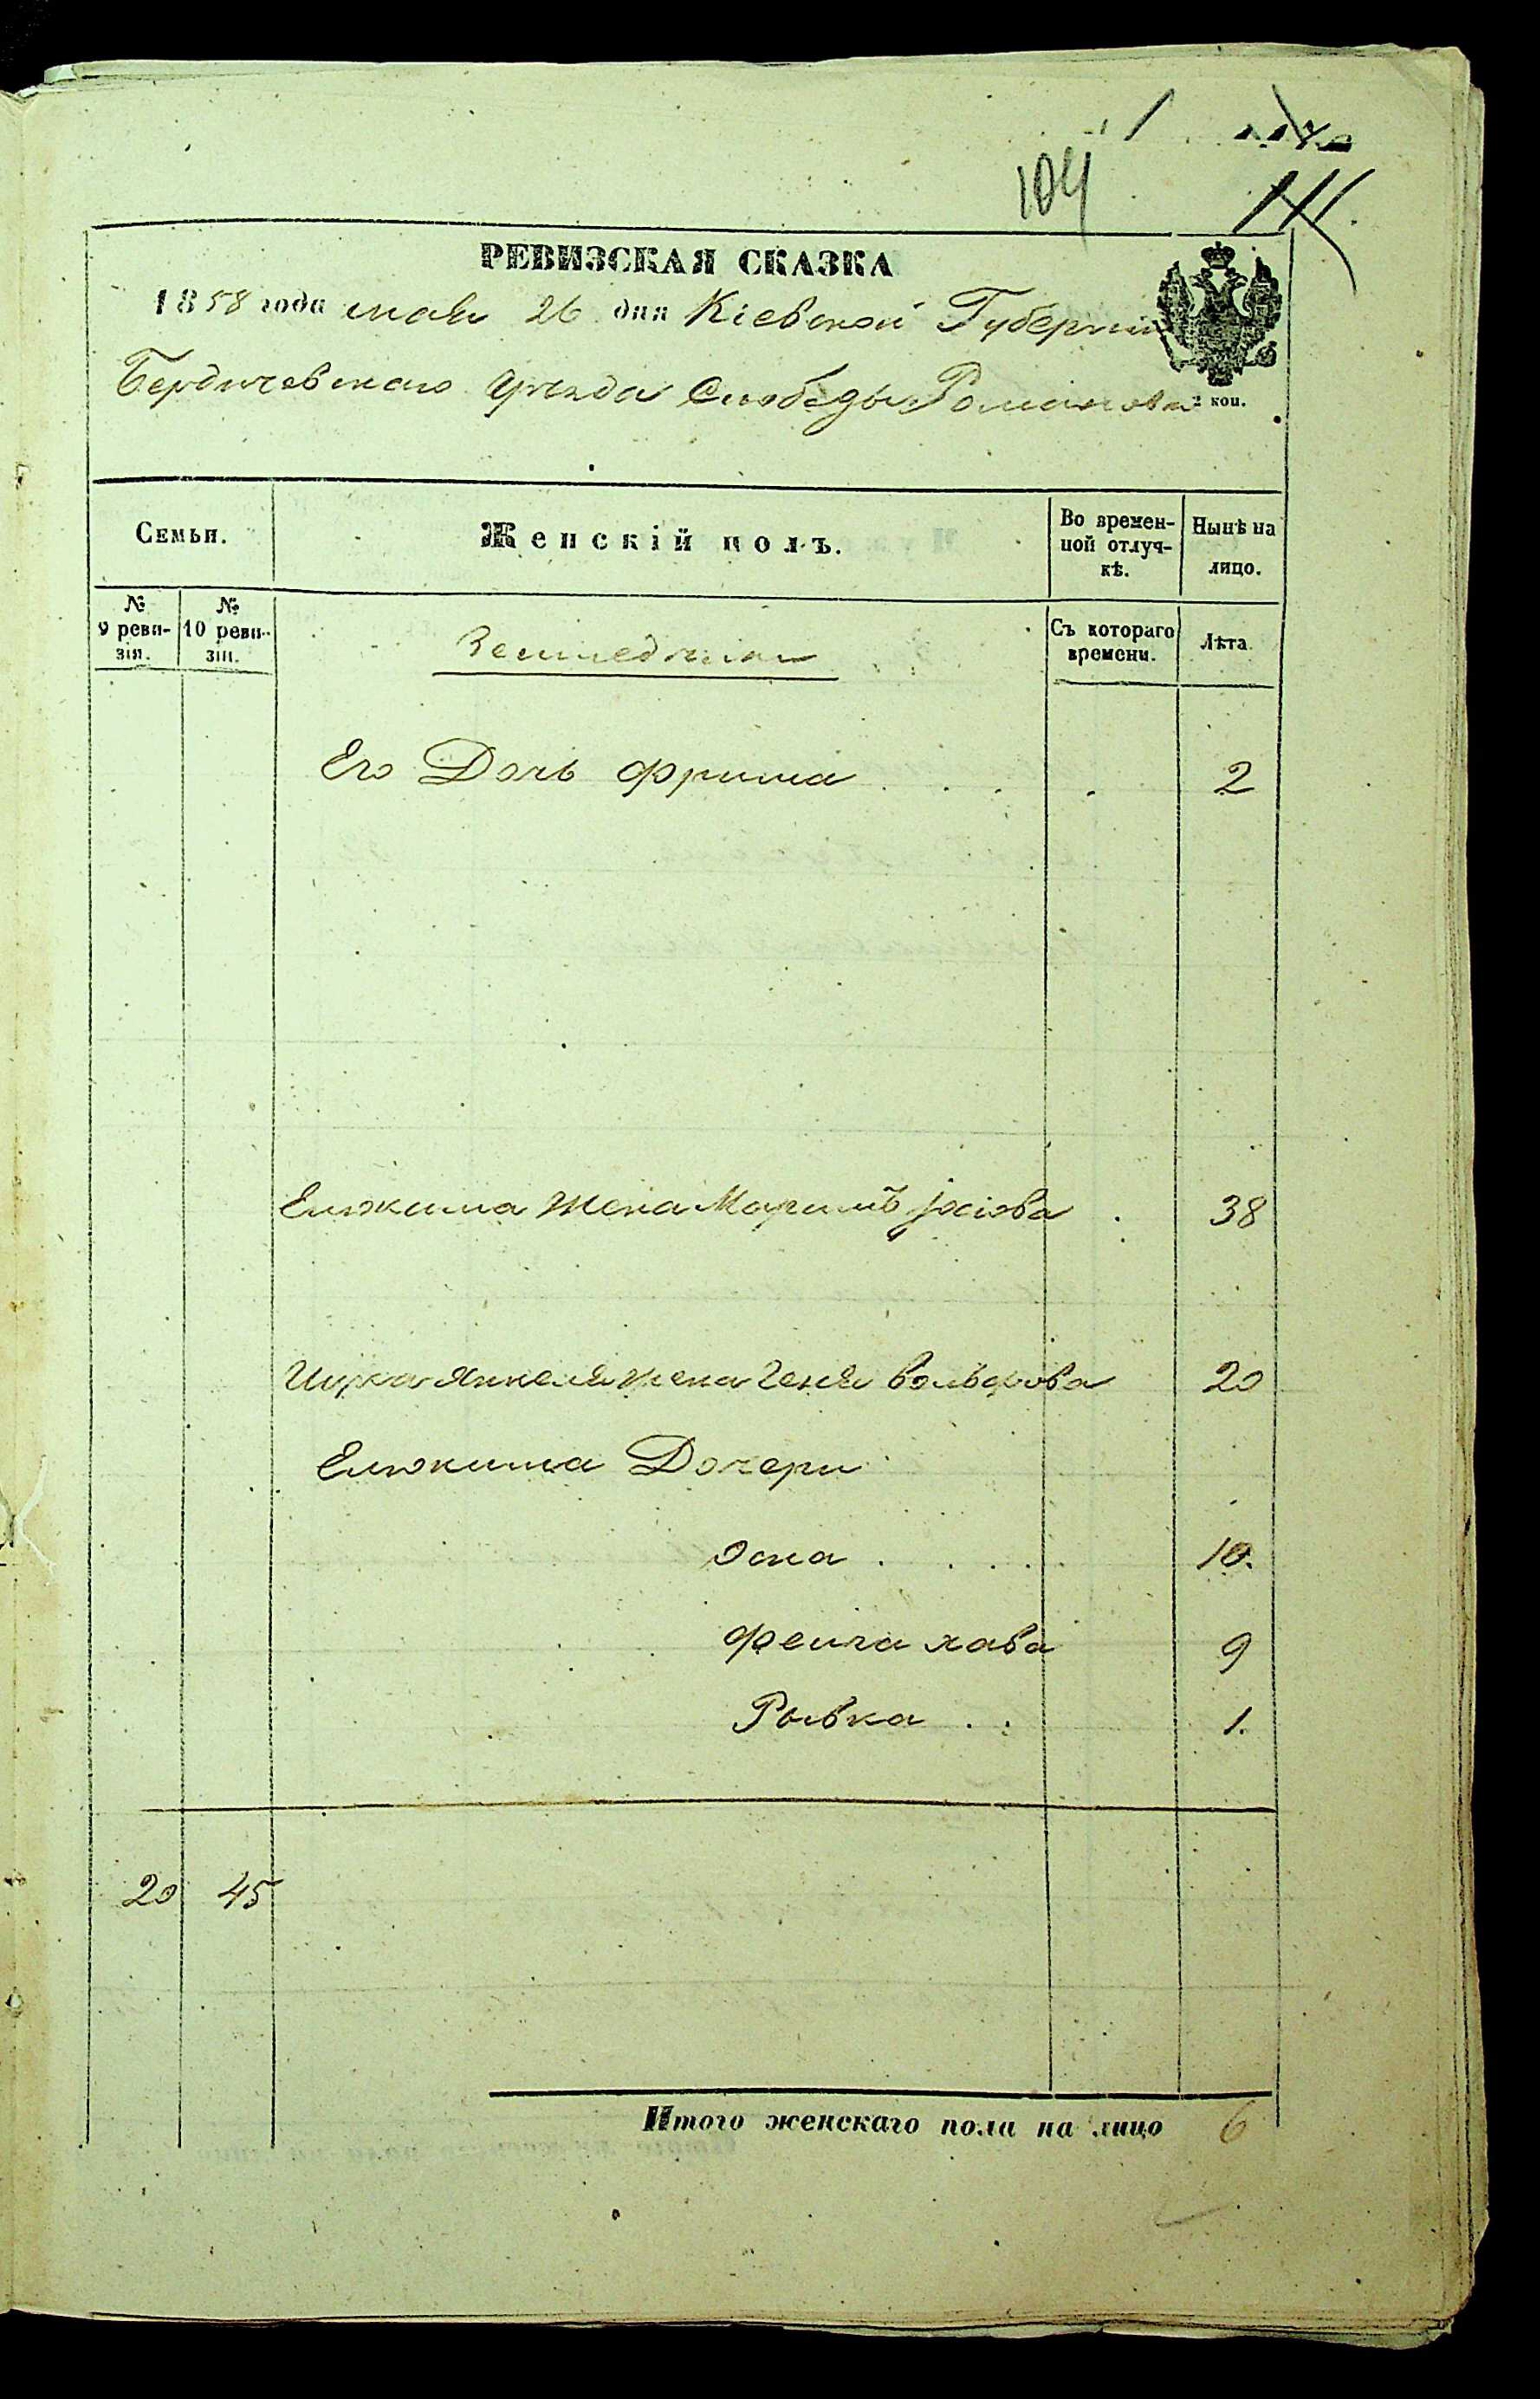 104
РЕВИЗСКАЯ СКАЗКА
1858 года мая 26 дня Кіевской Губерніи
Бердичевскаго уѣзда Слободы Романовки
2 коп.
Семьи. Женскій полъ. Во времен-ной отлуч-кѣ. Нынѣ на лицо.
№ 9 реви-зіи. № 10 реви-зіи. Земледѣльцы Съ котораго времени. Лѣта.
Его Дочь Фрима 2
жена Іосіова 38
Янкеля жена Геня Вольфова 20
Дочери
9
10.
Фейга хава 9
Рывка 1.
20 45
Итого женскаго пола на лицо 6